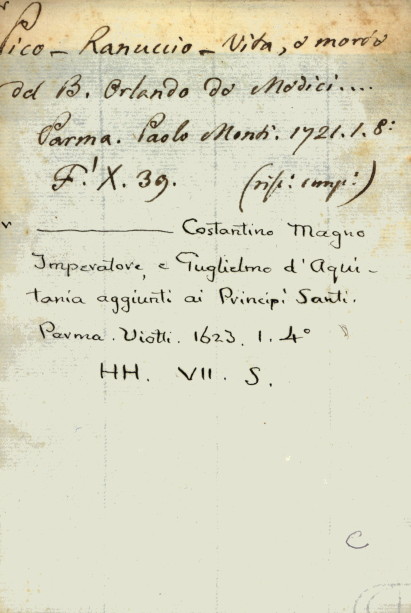 Pico - Ranuccio - Vita, e morte
del B. Orlando de Medici....
Parma. Paolo Monti. 1721. 1. 8:
F.' X. 39. (risp: comp:)
———— Costantino Magno
Imperatore, e Guglielmo d'Aqui-
tania aggiunti ai Principi Santi.
Parma. Viotti. 1623. 1. 4°
HH. VII. S.
C